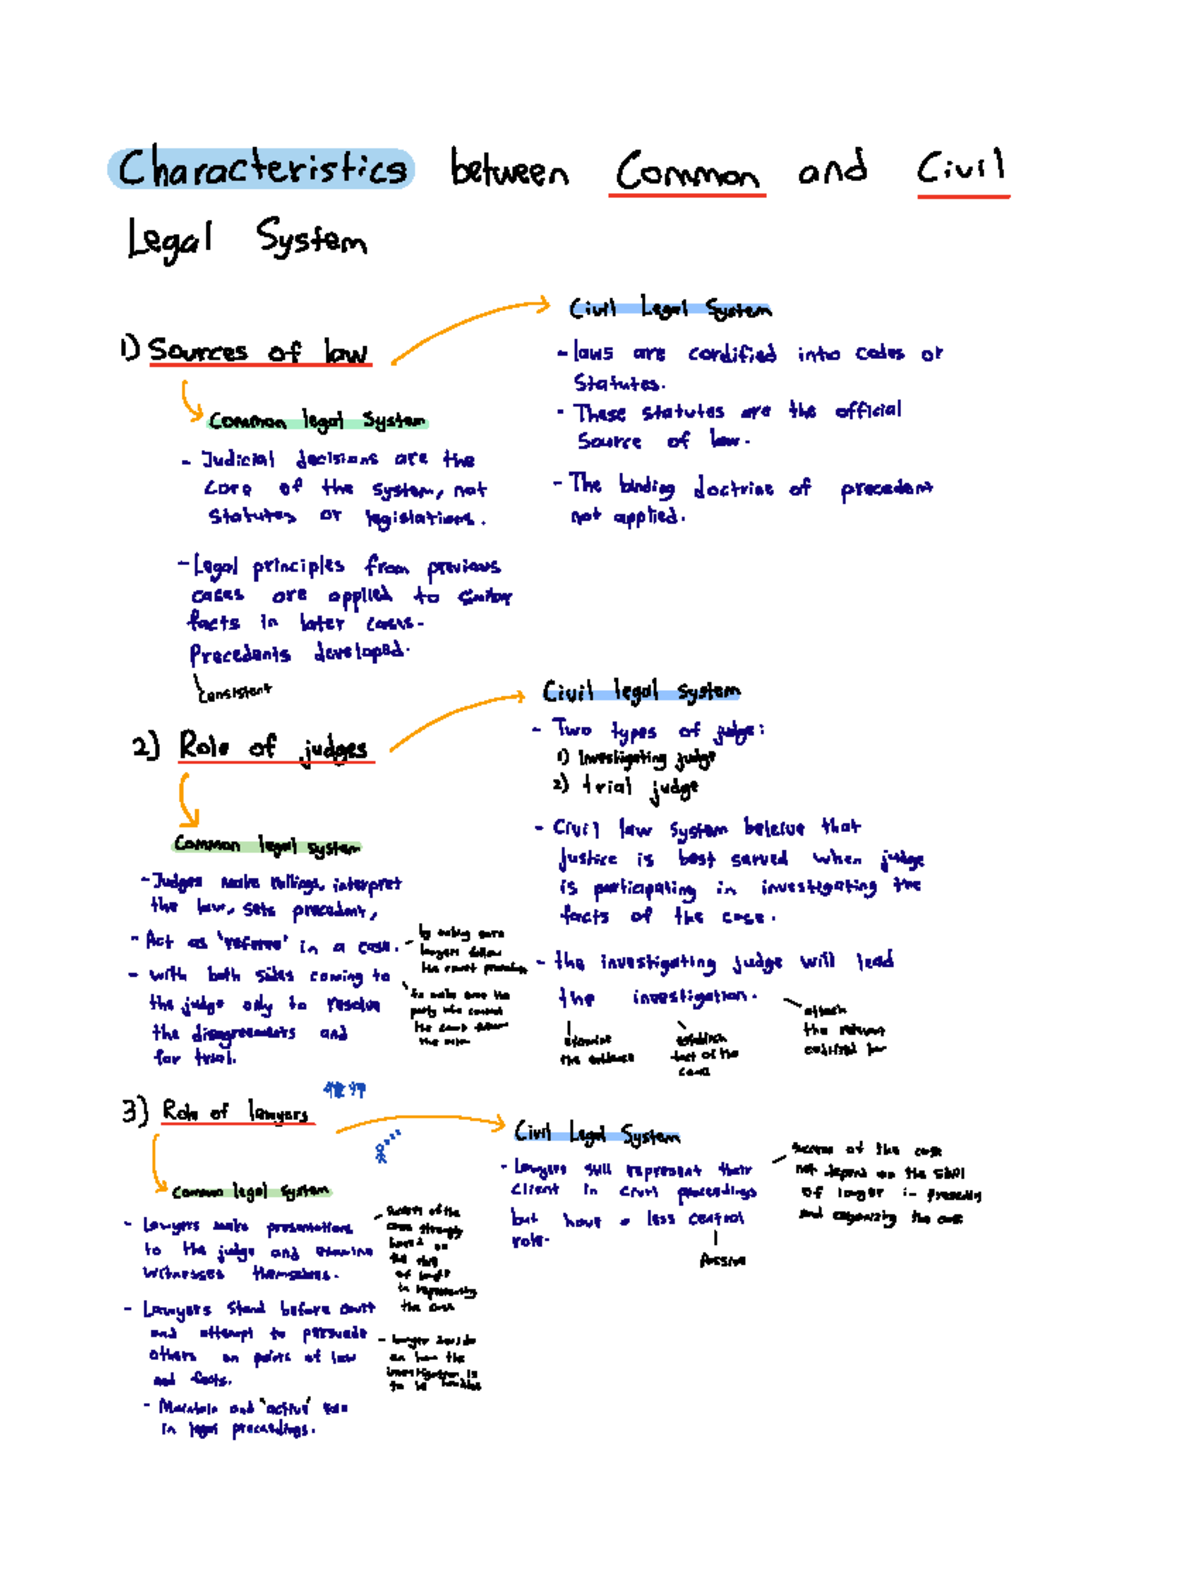 Characteristics between Common and Civil
Legal System
1) Sources of law
Common legal System
- Judicial decisions are the
core of the system, not
statutes or legislations.
- Legal principles from previous
cases are applied to similar
facts in later cases.
Precedents developed.
consistent
Civil Legal System
- laws are cordified into codes or
Statutes.
- These statutes are the official
Source of law.
- The binding doctrine of precedent
not applied.
2) Role of judges
Common legal system
- Judges make rullings, interpret
the law, sets precedent,
- Act as 'referee' in a case.
- by making sure
lawyers follow
the court
- with both sides coming to
the judge only to resolve
the disagreements and
for trial.
to make sure the
party who
the
the
Civil legal system
- Two types of judge:
1) Investigating judge
2) trial judge
- Civil law system beleive that
justice is best served when judge
is participating in investigating the
facts of the case.
- the investigating judge will lead
the investigation.
examine
the evidence
establish
fact of the
case
attach
the relevant
3) Role of lawyers
Common legal system
- Lawyers make presentations
to the judge and examine
witnesses themselves.
- success of the
case strongly
based on
the skill
of lawyer
in representing
the case
- Lawyers stand before court
and attempt to persuade
others on points of law
and facts.
- lawyer decide
on how the
investigation is
to be handled
- Maintain and 'active' role
in legal proceedings.
Civil Legal System
- Lawyers still represent their
client in civil proceedings
but have a less control
role.
Passive
- success of the case
not depend on the skill
of lawyer in presenting
and organizing the case